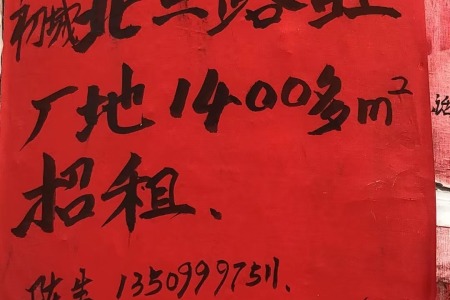 初城北三路
厂地1400多m²
招租、
陈生 13509997511.